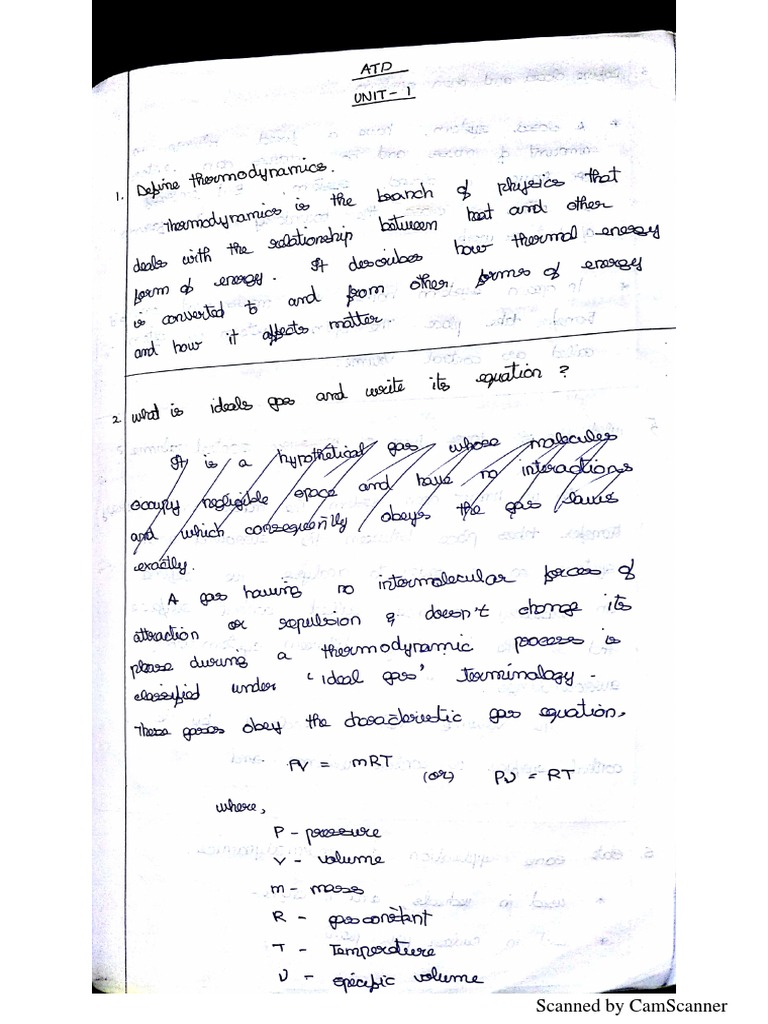 ATD
UNIT-1
1. Define thermodynamics.
Thermodynamics is the branch of physics that
deals with the relationship between heat and other
form of energy. It describes how thermal energy
is converted to and from other forms of energy
and how it affects matter
2. What is ideals gas and write its equation ?
It is a hypothetical gas whose molecules
occupy negligible space and have no interactions
and which consequently obeys the gas laws
exactly.
A gas having no intermolecular forces of
attraction or repulsion & doesn't change its
phase during a thermodynamic process is
classified under 'ideal gas' terminalogy.
These gases obey the characteristic gas equation.
PV = mRT (or) Pv = RT
where,
P - pressure
V - volume
m - mass
R - gas constant
T - Temperature
v - specific volume
Scanned by CamScanner